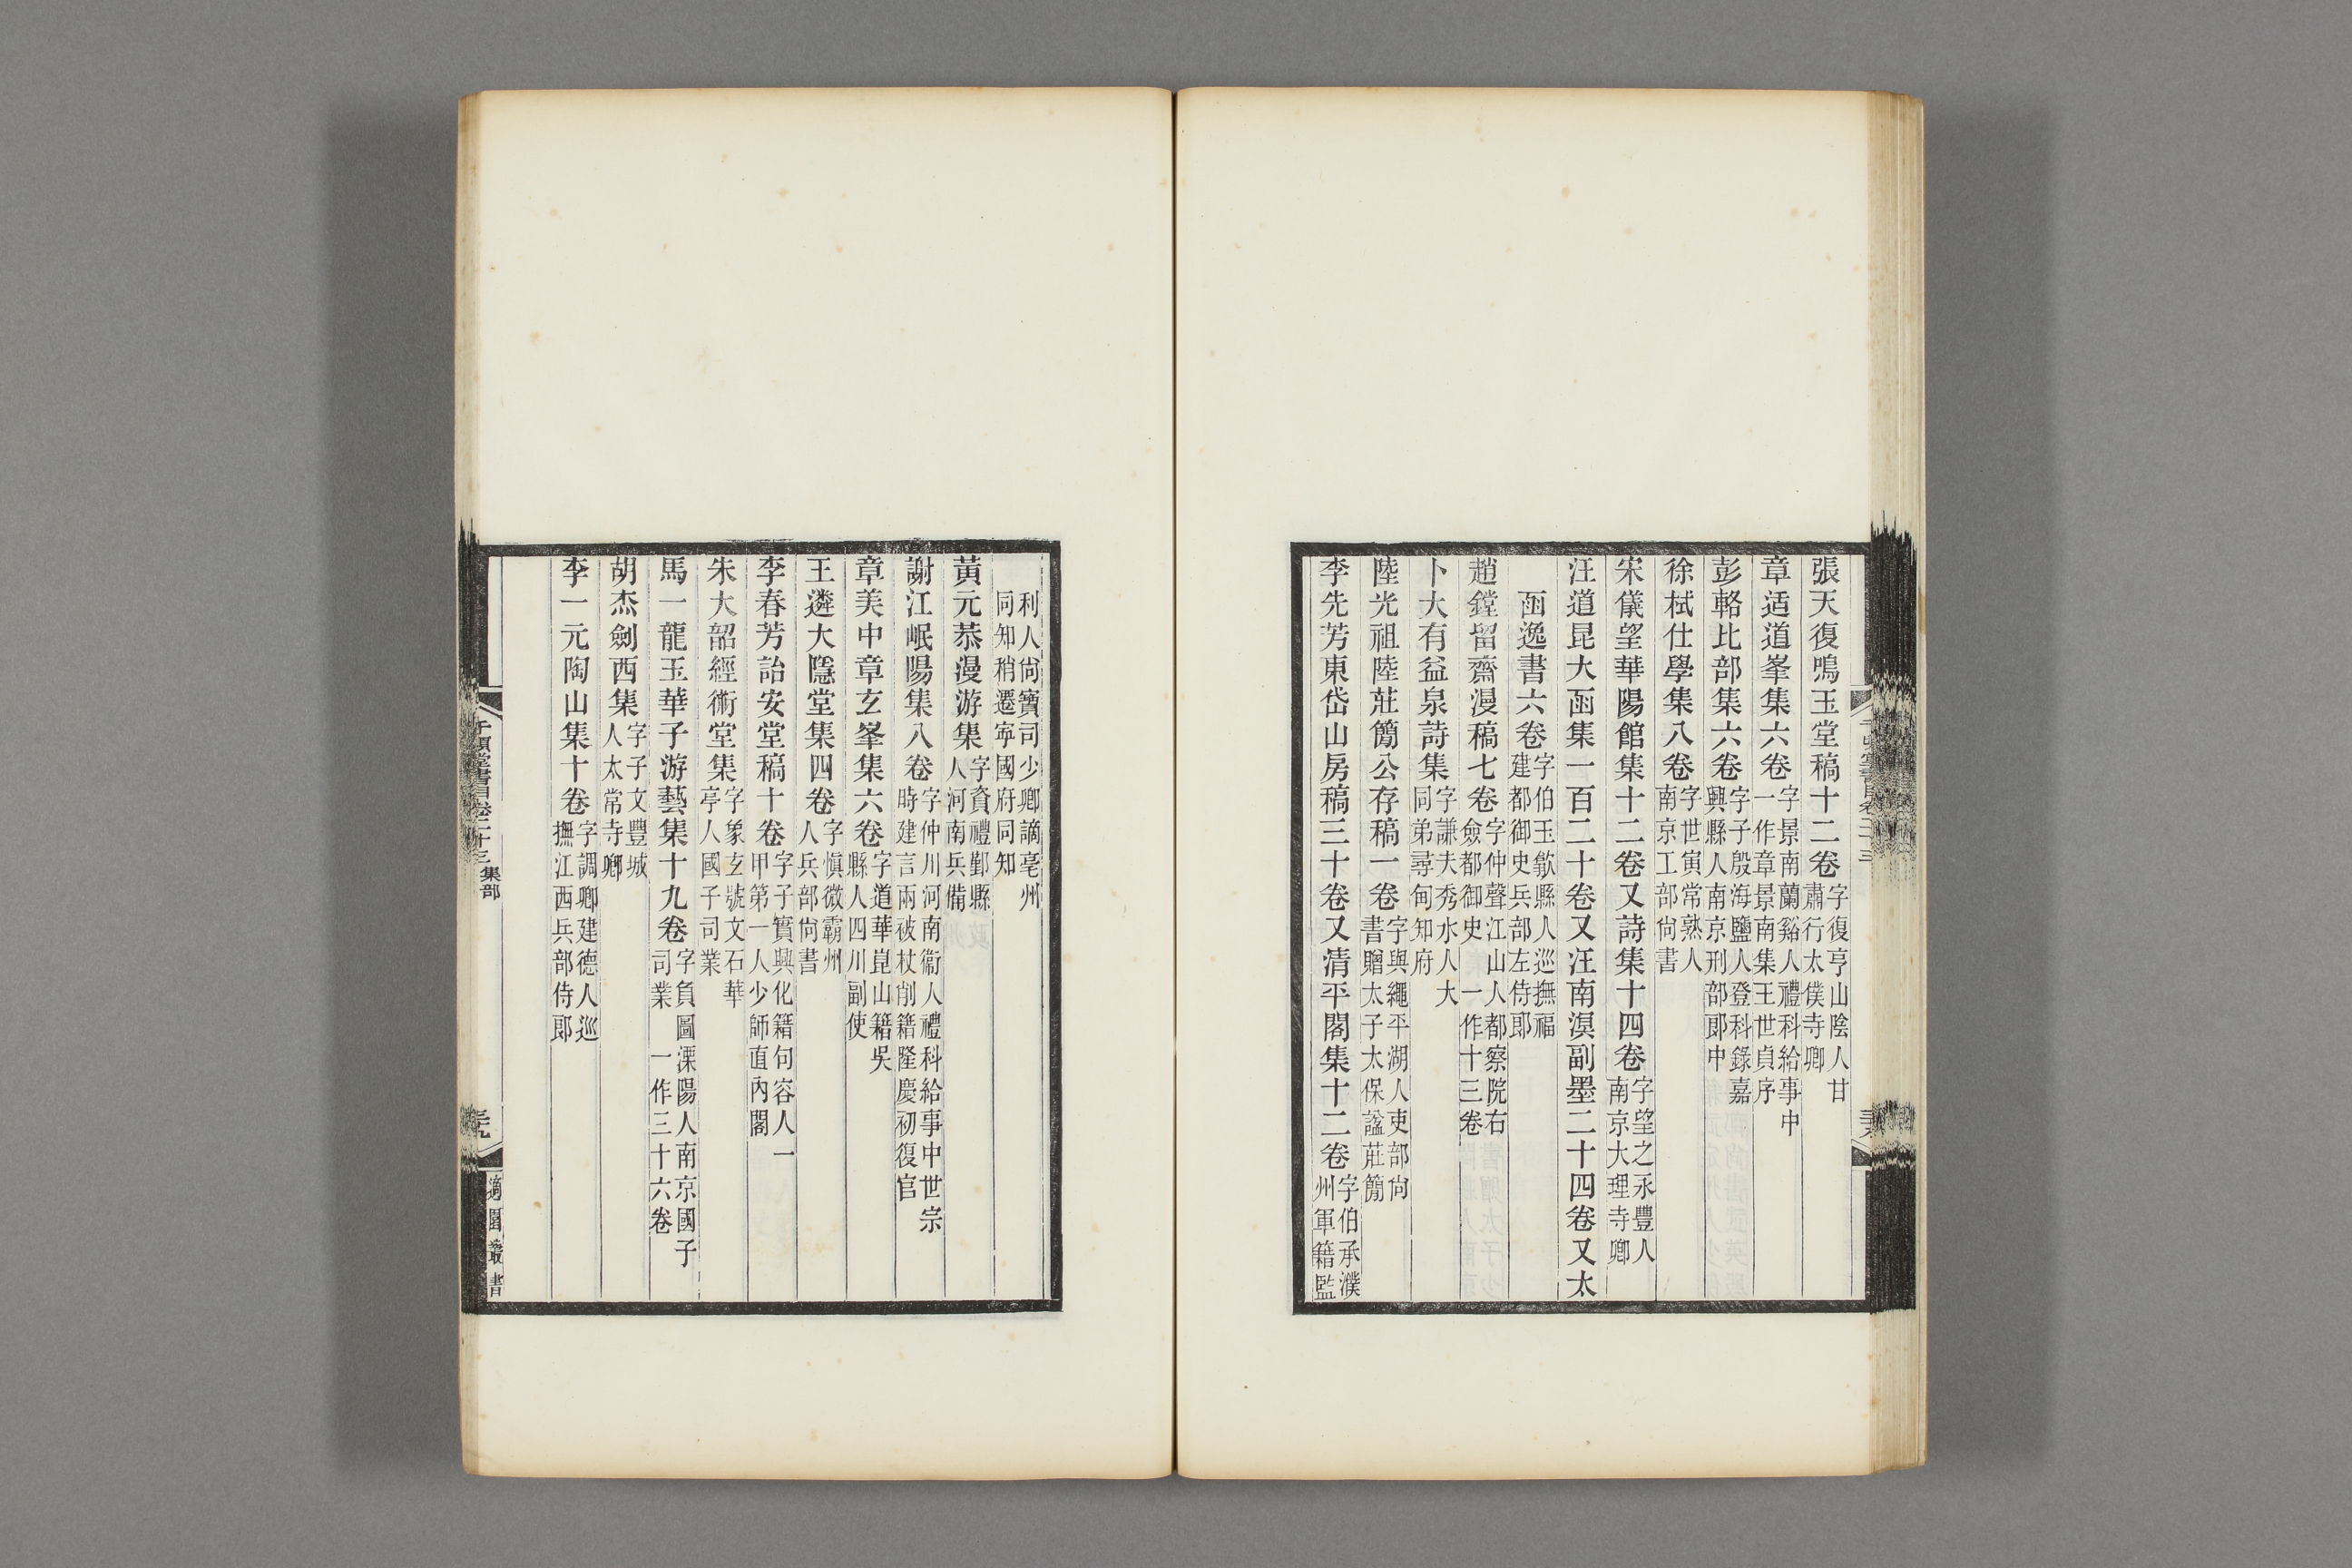 張天復鳴玉堂稿十二卷字復亨山陰人甘肅行太僕寺卿
章适道峯集六卷字景南蘭谿人禮科給事中一作章景南集王世貞序
彭輅比部集六卷字子殷海鹽人登科錄嘉興縣人南京刑部郞中
徐栻仕學集八卷字世寅常熟人南京工部尙書
宋儀望華陽館集十二卷又詩集十四卷字望之永豐人南京大理寺卿
汪道昆大函集一百二十卷又汪南溟副墨二十四卷又太
函逸書六卷字伯玉歙縣人巡撫福建都御史兵部左侍郞
趙鏜留齋漫稿七卷字仲聲江山人都察院右僉都御史一作十三卷
卜大有益泉詩集字謙夫秀水人大同弟尋甸知府
陸光祖陸莊簡公存稿一卷字與繩平湖人吏部尙書贈太子太保諡莊簡
李先芳東岱山房稿三十卷又淸平閣集十二卷字伯承濮州軍籍監
利人尙寶司少卿謫亳州同知稍遷寧國府同知
黃元恭漫游集字資禮鄞縣人河南兵備
謝江岷陽集八卷字仲川河南衞人禮科給事中世宗時建言兩被杖削籍隆慶初復官
章美中章玄峯集六卷字道華崑山籍吳縣人四川副使
王遴大隱堂集四卷字愼微霸州人兵部尙書
李春芳詒安堂稿十卷字子實興化籍句容人一甲第一人少師直內閣
朱大韶經術堂集字象玄號文石華亭人國子司業
馬一龍玉華子游藝集十九卷字負圖溧陽人南京國子司業 一作三十六卷
胡杰劍西集字子文豐城人太常寺卿
李一元陶山集十卷字調卿建德人巡撫江西兵部侍郞
千頃堂書目卷二十三 集部
三九
適園叢書